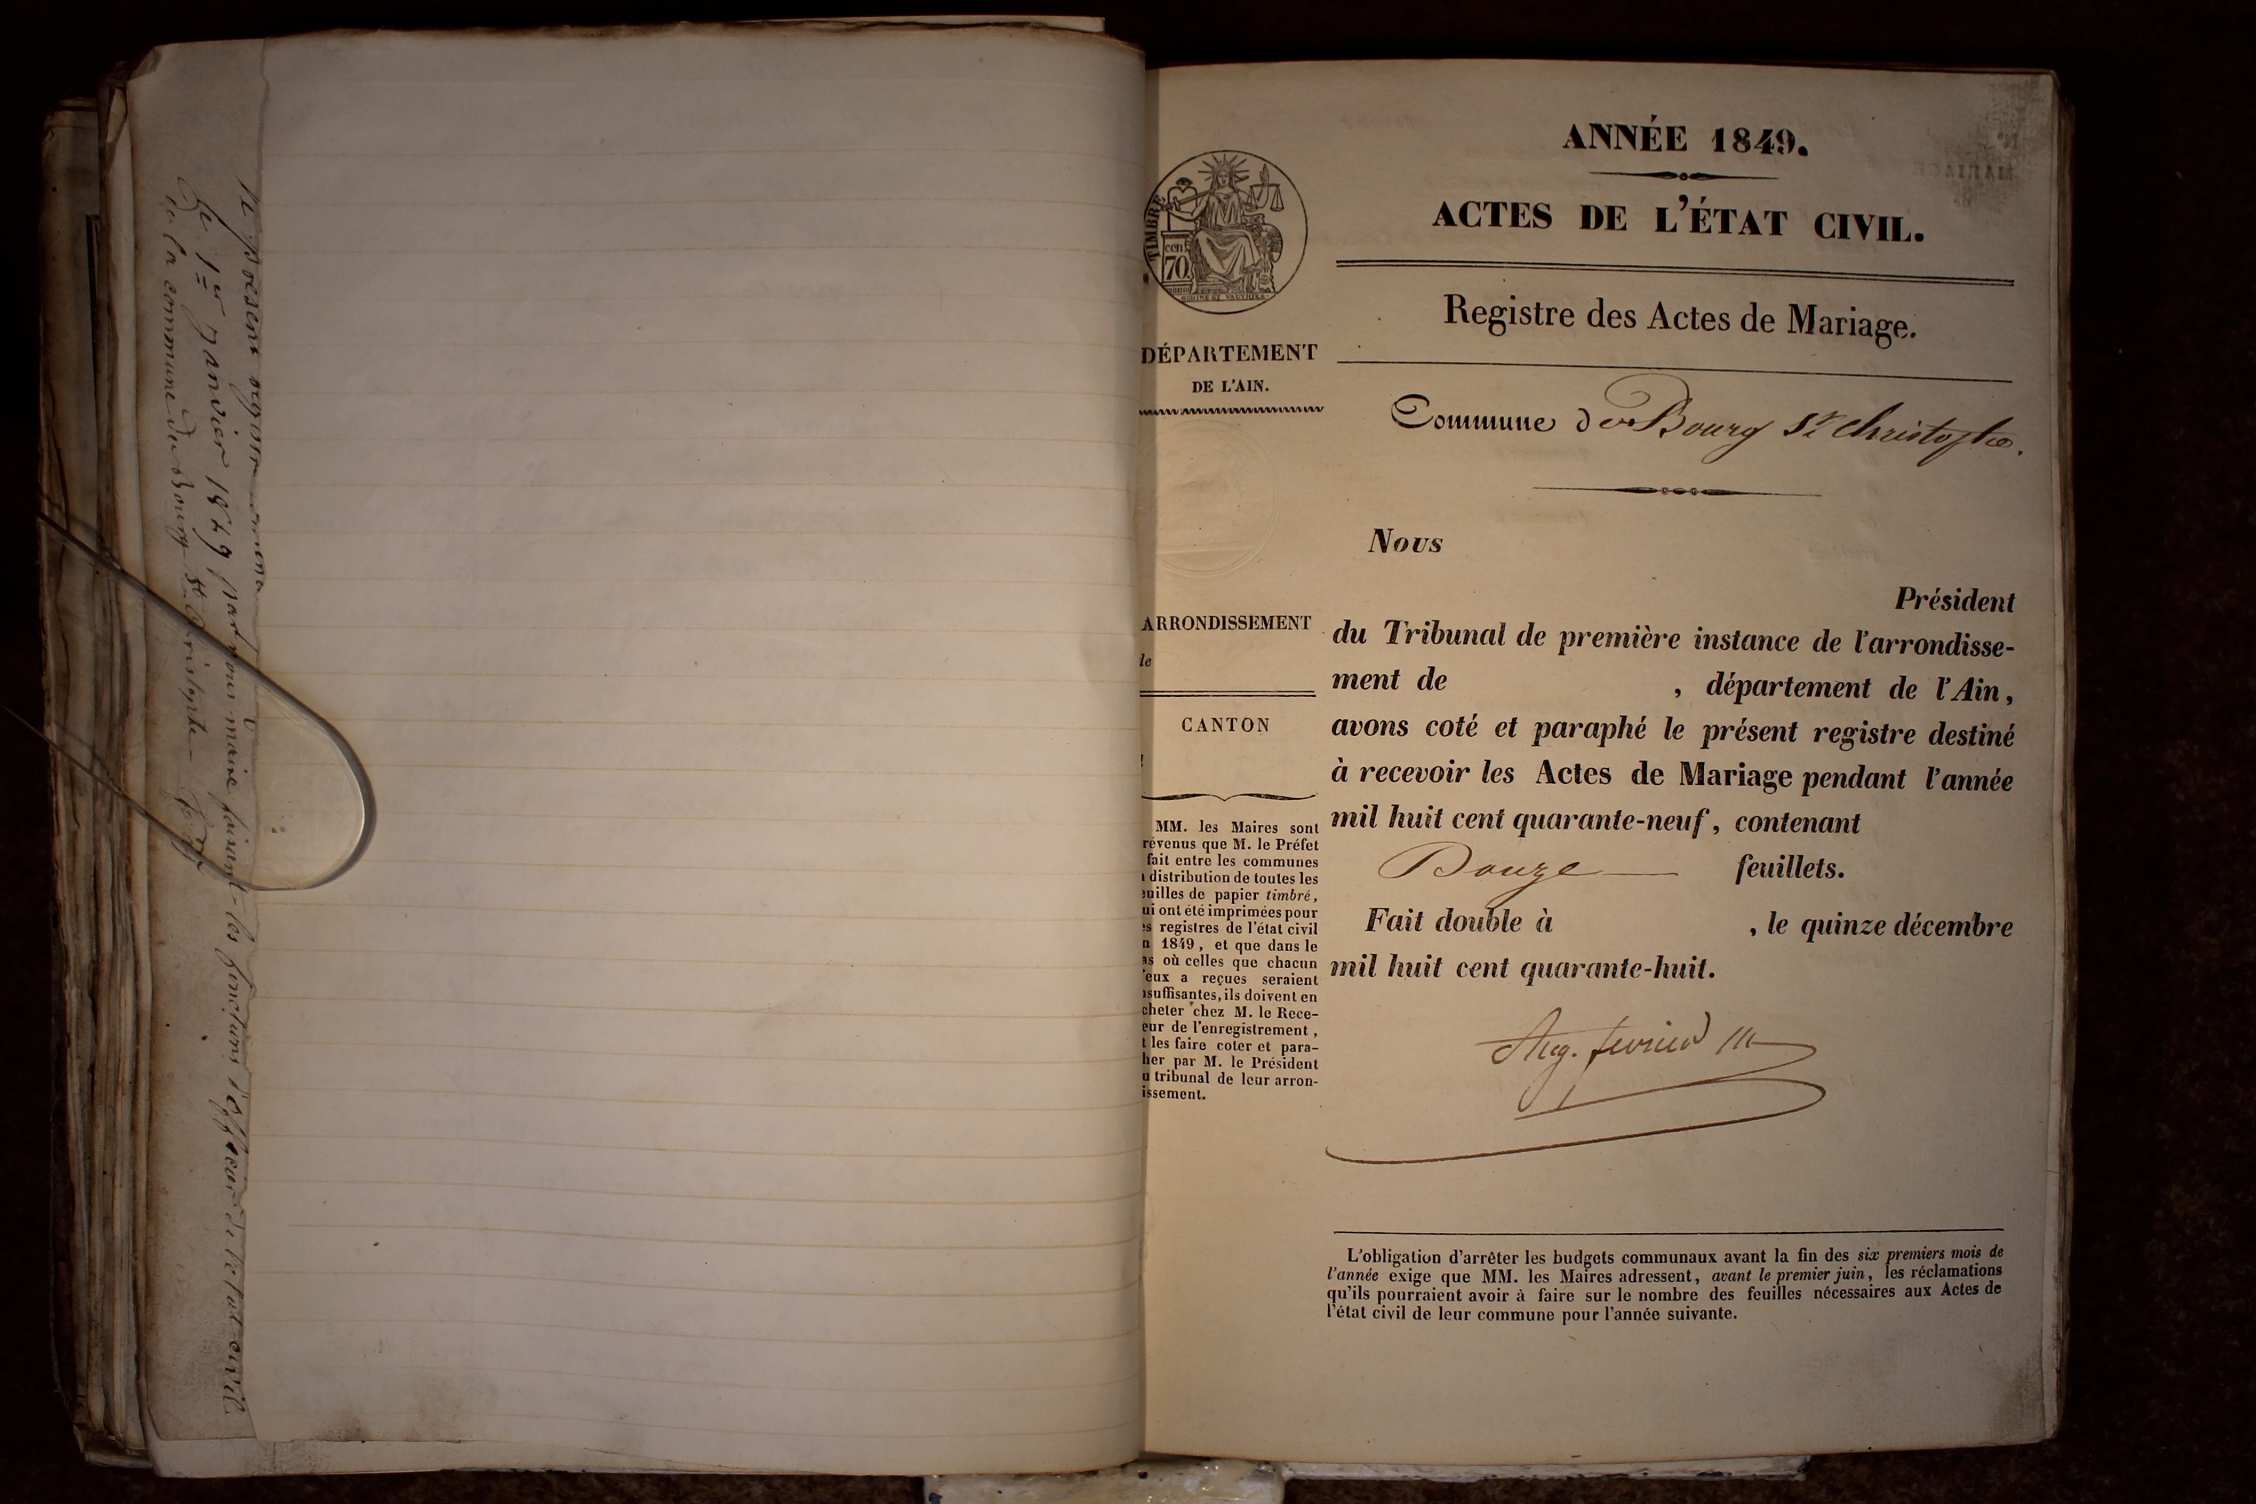 le présent registre
le 1er Janvier 1849 par nous maire faisant les fonctions d'officier de l'état civil
de la commune du Bourg St Christophe
TIMBRE
cen
70
DÉPARTEMENT
DE L'AIN.
ARRONDISSEMENT
de
CANTON
MM. les Maires sont
révenus que M. le Préfet
fait entre les communes
distribution de toutes les
euilles de papier timbré,
ui ont été imprimées pour
es registres de l'état civil
n 1849, et que dans le
as où celles que chacun
'eux a reçues seraient
nsuffisantes, ils doivent en
cheter chez M. le Rece-
eur de l'enregistrement,
t les faire coter et para-
her par M. le Président
u tribunal de leur arron-
issement.
ANNÉE 1849.
ACTES DE L'ÉTAT CIVIL.
Registre des Actes de Mariage.
Commune de Bourg St Christophe.
Nous
Président
du Tribunal de première instance de l'arrondisse-
ment de , département de l'Ain,
avons coté et paraphé le présent registre destiné
à recevoir les Actes de Mariage pendant l'année
mil huit cent quarante-neuf, contenant
Douze feuillets.
Fait double à , le quinze décembre
mil huit cent quarante-huit.
L'obligation d'arrêter les budgets communaux avant la fin des six premiers mois de
l'année exige que MM. les Maires adressent, avant le premier juin, les réclamations
qu'ils pourraient avoir à faire sur le nombre des feuilles nécessaires aux Actes de
l'état civil de leur commune pour l'année suivante.